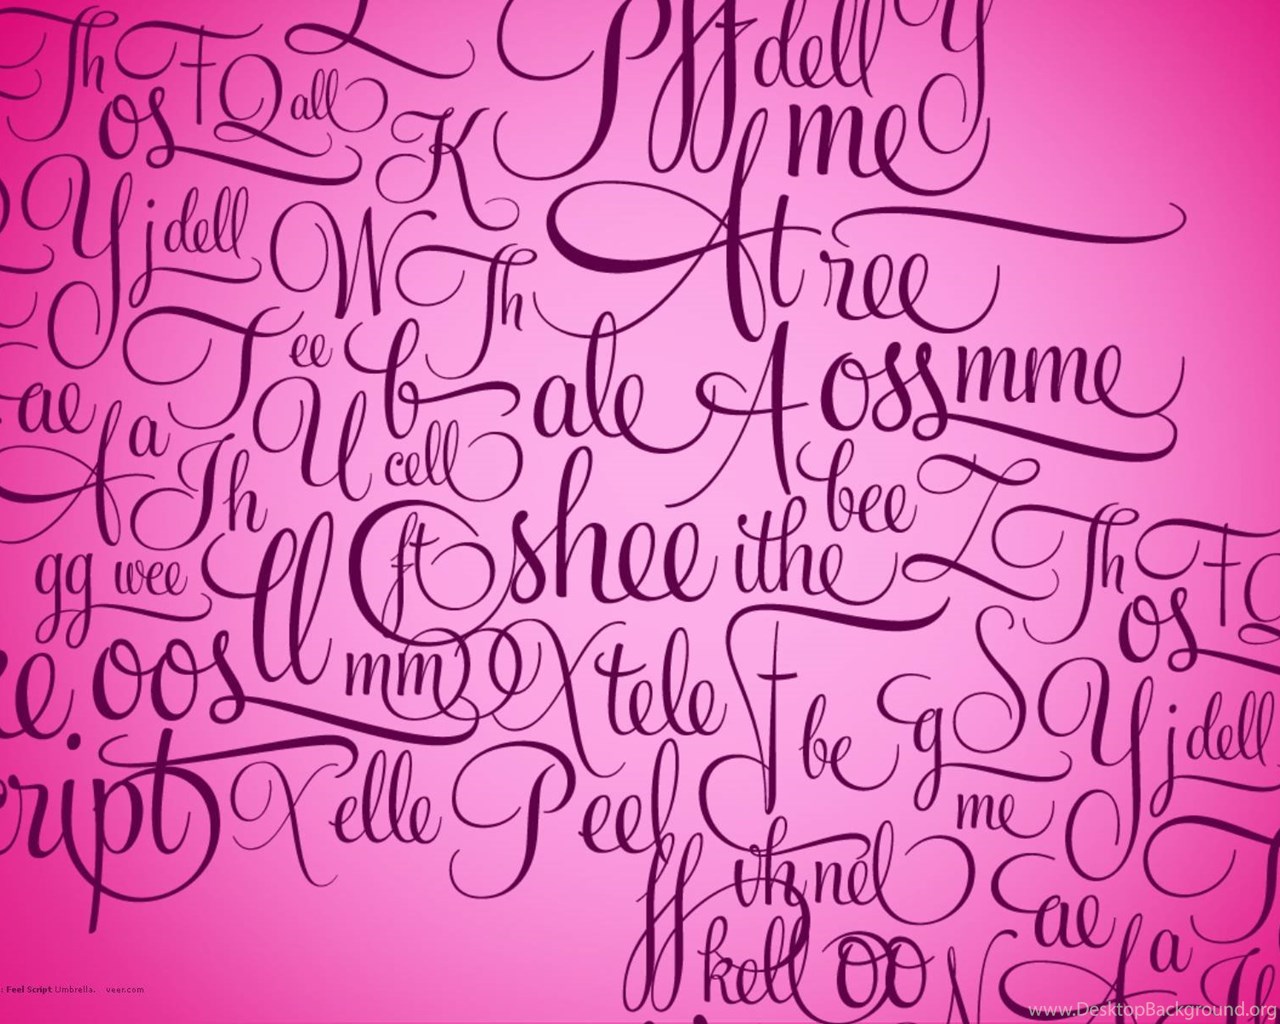 Th F Q all P ff dell Y
os K me
Y j dell W Th A t ree
T ee b ale A oss mme
ae A a Th U cell bee Z Th F
gg wee ll ft shee ithe os
e. oos mm X tele F be g S Y j dell
cript X elle P eel me T
ff th nel ae
kell oo N A a
: Feel Script Umbrella. veer.com
www.DesktopBackground.org